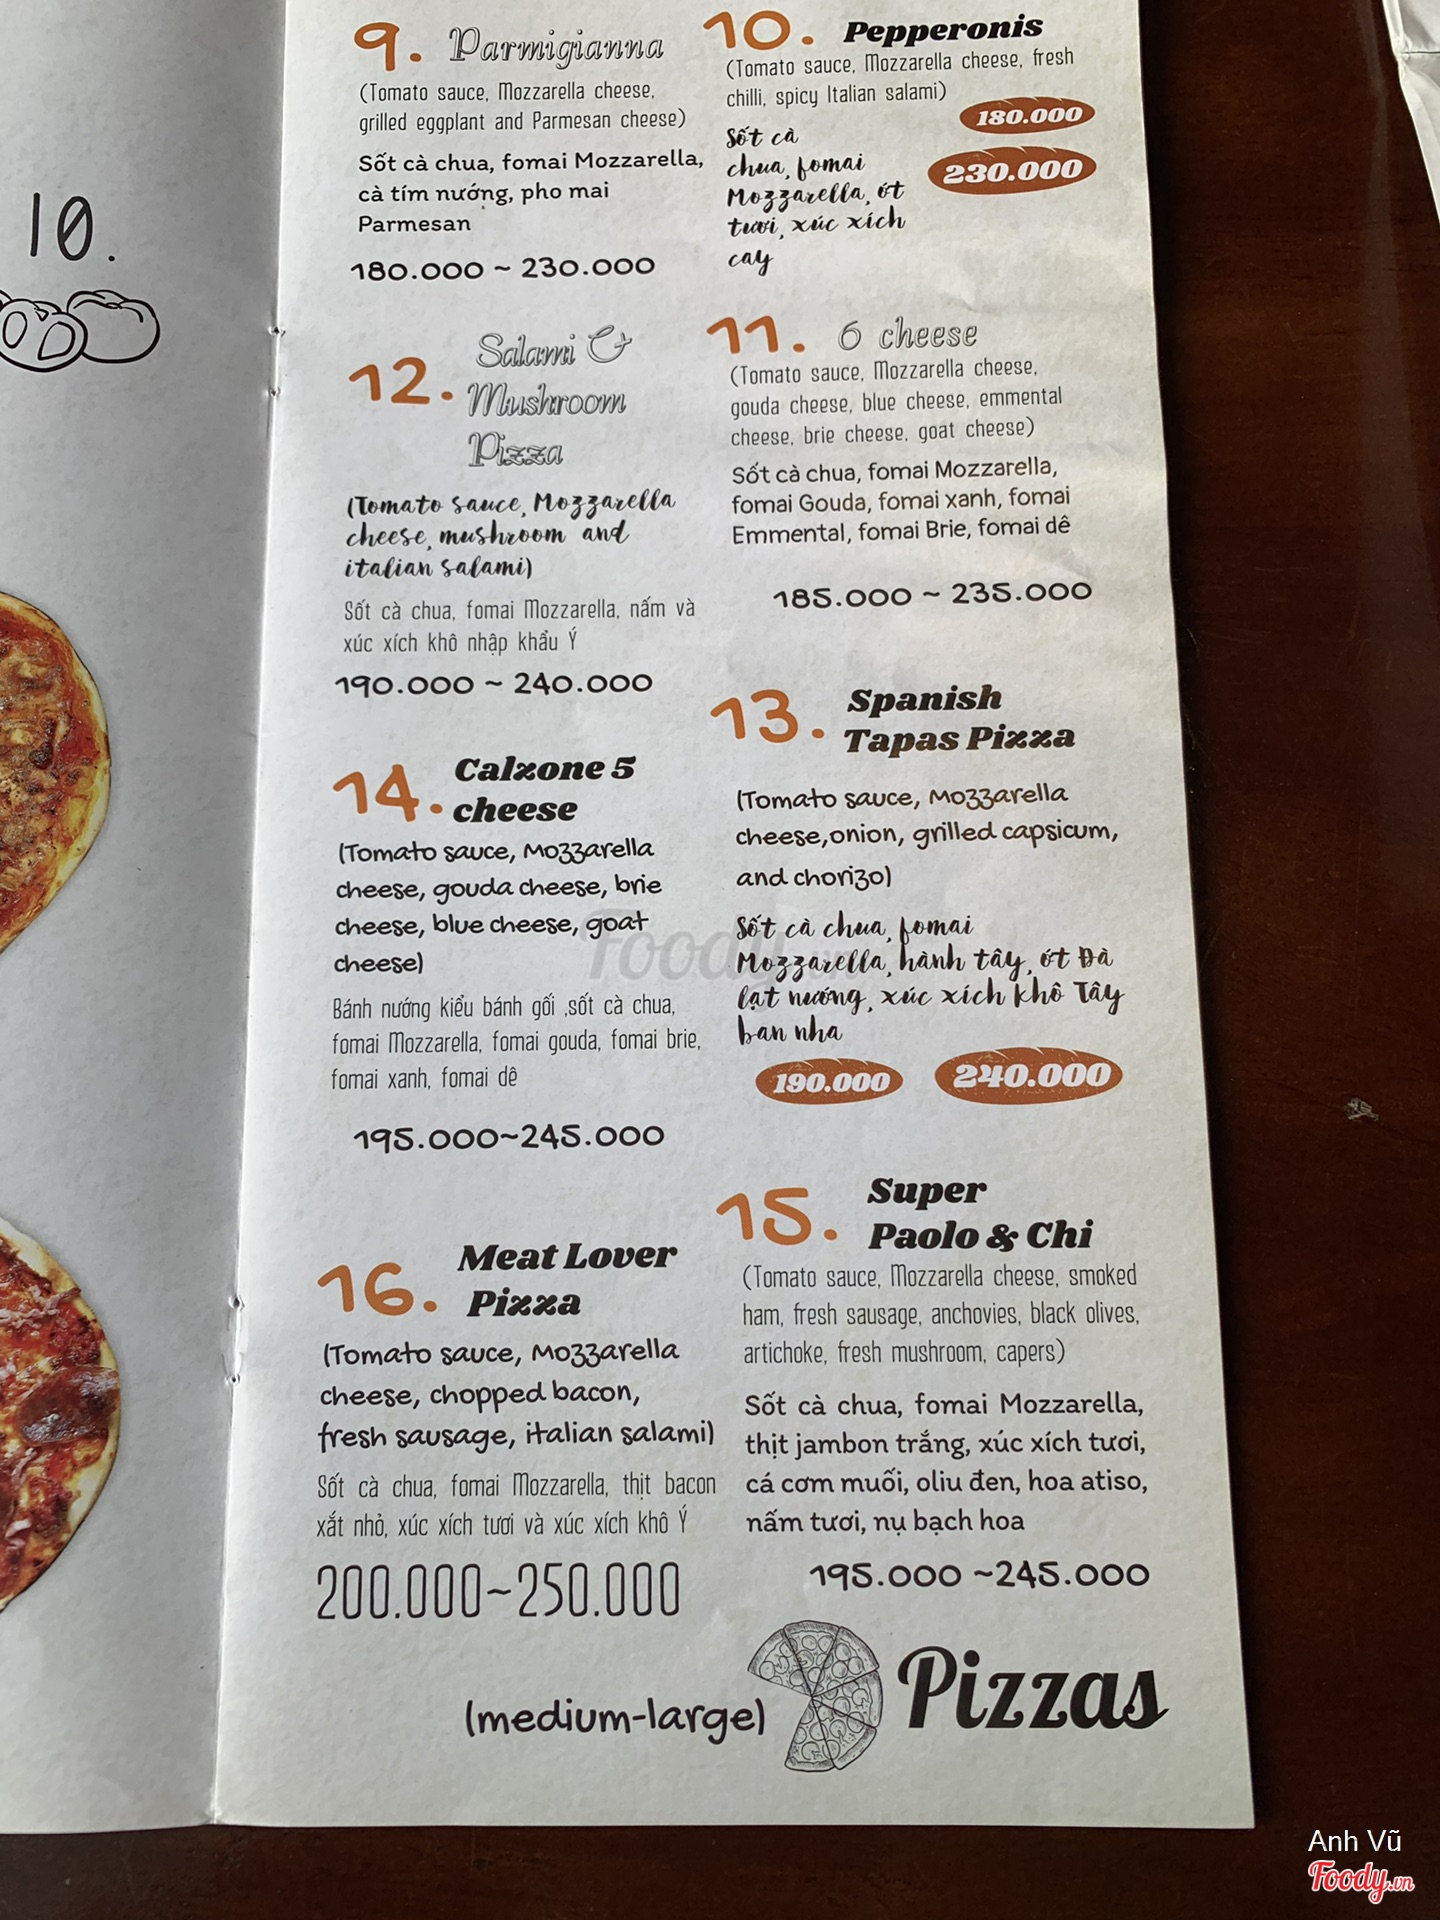 10.
9. Parmigianna
(Tomato sauce, Mozzarella cheese,
grilled eggplant and Parmesan cheese)
Sốt cà chua, fomai Mozzarella,
cà tím nướng, pho mai
Parmesan
180.000 ~ 230.000
10. Pepperonis
(Tomato sauce, Mozzarella cheese, fresh
chilli, spicy Italian salami)
180.000
230.000
Sốt cà
chua, fomai
Mozzarella, ớt
tươi, xúc xích
cay
12. Salami &
Mushroom
Pizza
(Tomato sauce, Mozzarella
cheese, mushroom and
italian salami)
Sốt cà chua, fomai Mozzarella, nấm và
xúc xích khô nhập khẩu Ý
190.000 ~ 240.000
11. 6 cheese
(Tomato sauce, Mozzarella cheese,
gouda cheese, blue cheese, emmental
cheese, brie cheese, goat cheese)
Sốt cà chua, fomai Mozzarella,
fomai Gouda, fomai xanh, fomai
Emmental, fomai Brie, fomai dê
185.000 ~ 235.000
14. Calzone 5
cheese
(Tomato sauce, Mozzarella
cheese, gouda cheese, brie
cheese, blue cheese, goat
cheese)
Bánh nướng kiểu bánh gối ,sốt cà chua,
fomai Mozzarella, fomai gouda, fomai brie,
fomai xanh, fomai dê
195.000~245.000
13. Spanish
Tapas Pizza
(Tomato sauce, Mozzarella
cheese,onion, grilled capsicum,
and chorizo)
Sốt cà chua, fomai
Mozzarella, hành tây, ớt Đà
lạt nướng, xúc xích khô Tây
ban nha
190.000 240.000
16. Meat Lover
Pizza
(Tomato sauce, Mozzarella
cheese, chopped bacon,
fresh sausage, italian salami)
Sốt cà chua, fomai Mozzarella, thịt bacon
xắt nhỏ, xúc xích tươi và xúc xích khô Ý
200.000~250.000
15. Super
Paolo & Chi
(Tomato sauce, Mozzarella cheese, smoked
ham, fresh sausage, anchovies, black olives,
artichoke, fresh mushroom, capers)
Sốt cà chua, fomai Mozzarella,
thịt jambon trắng, xúc xích tươi,
cá cơm muối, oliu đen, hoa atiso,
nấm tươi, nụ bạch hoa
195.000 ~245.000
(medium-large) Pizzas
Foody.vn
Anh Vũ
Foody.vn